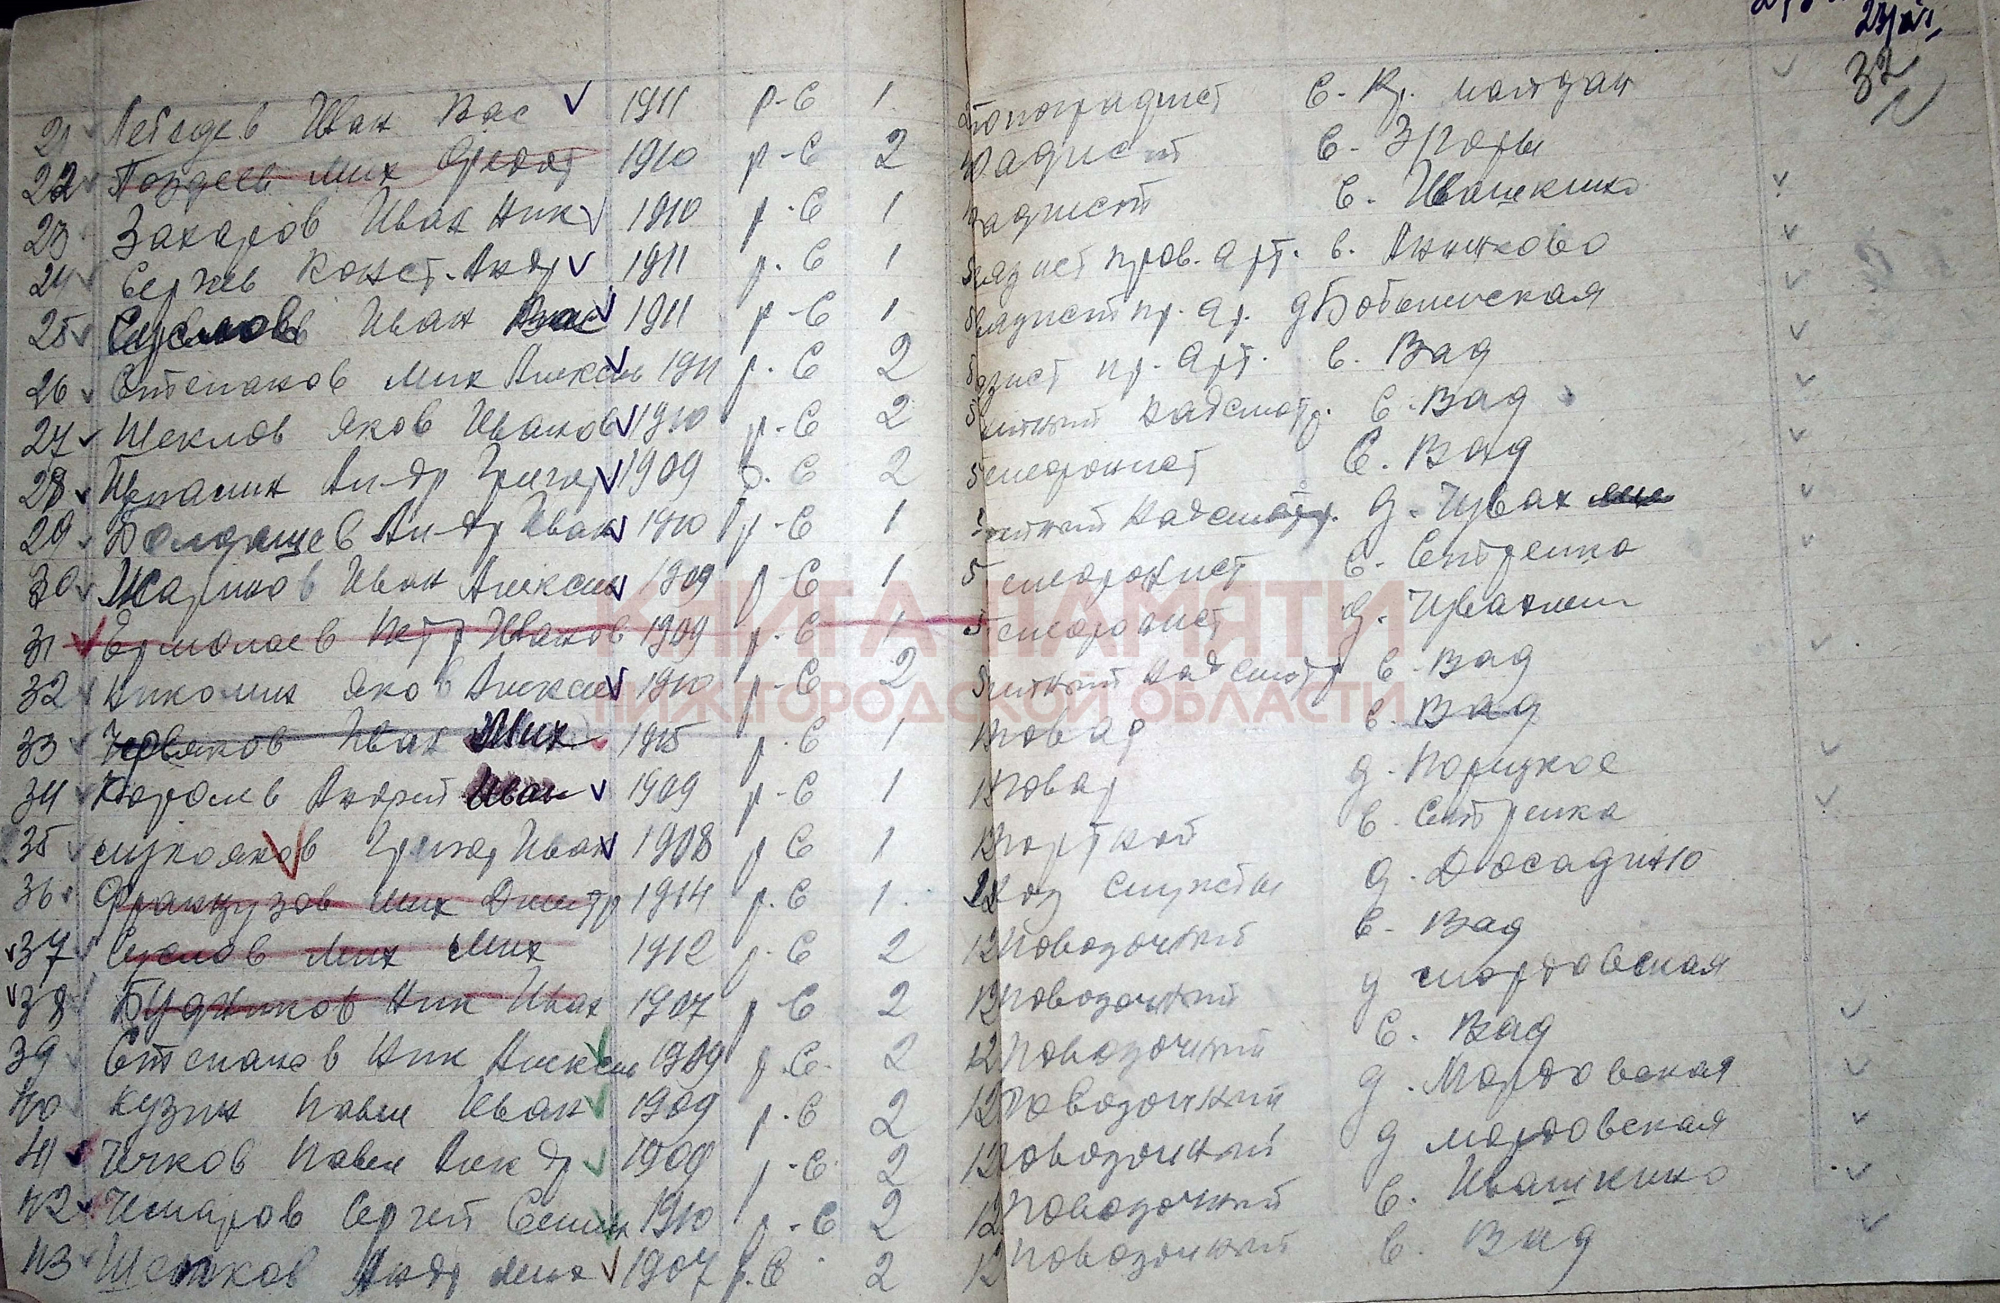 23/VI
32
21 Лебедев Иван Вас 1911 р-С 1 топоградист С. Кр. майдан
22 Поздеев Мих Федот 1910 р-С 2 радист С. Згоры
23 Захаров Иван Ник 1910 р-С 1 радист С. Ивашкино
24 Сергеев Конст. Андр 1911 р. С 1 радист пров. арт. с. Анинково
25 Суслов Иван Вас 1911 р-С 1 радист пр. ар. д Бобыльская
26 Степанов Мих Алексан 1911 р. С 2 пр. Арт. с. Вад
27 Щеклов Яков Иванов 1910 р-С 2 надсмотр. С. Вад
28 Андр Григор 1909 р. С 2 телефонист С. Вад
29 Болдашев Ан-др Иван 1910 р-С 1 надсмотр. д. Чуваx
30 Жариков Иван Алексан 1909 р-С 1 телефонист С. Стрелка
31 Ермолаев Петр Иванов 1909 р-С 1 телефонист д.
32 Николин Яков Алексан 1910 р-С 2 надсмотр С. Вад
33 Червяков Иван Мих 1915 р-С 1 повар С. Вад
34 Королев Андрей Иван 1909 р-С 1 12 повар д. Порецкое
35 Лукоянов Григор Иван 1908 р С 1 12 портной С. Стрелка
36 Французов Мих Дмитр 1914 р. С 1 12 хоз службы д. Досадино
37 Суслов Мих Мих 1912 р-С 2 12 повозочный С. Вад
38 Будников Ник Иван 1907 р-С 2 12 повозочный д мордовская
39 Степанов Ник Алексан 1909 р. С. 2 12 повозочный С. Вад
40 Кузин Павел Иван 1909 р. С 2 12 повозочный д. Мордовская
41 Чичков Павел Алек др 1909 р-С 2 12 повозочный д мордовская
42 Чемаров Сергей Семен 1910 р-С 2 12 повозочный С. Ивашкино
43 Щепков Андр Мих 1907 р. С 2 12 повозочный С. Вад
КНИГА ПАМЯТИ
НИЖЕГОРОДСКОЙ ОБЛАСТИ